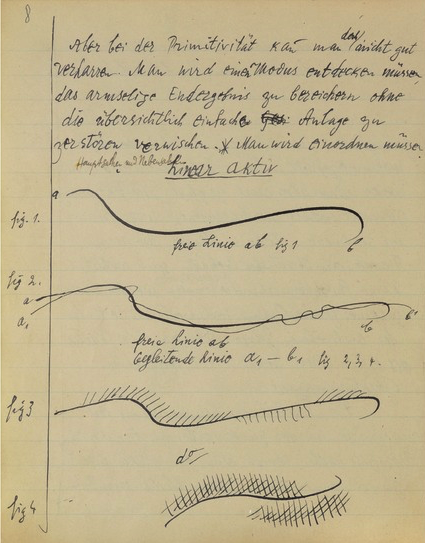 8
Aber bei der Primitivität kan man doch nicht gut
verharren. Man wird einen Modus entdecken müssen,
das armselige Endergebnis zu bereichern ohne
die übersichtlich einfache Anlage zu
zerstören verwischen. Man wird einordnen müssen
Hauptsachen und
linear aktiv
a
fig. 1.
freie Linie ab fig 1
b
fig 2.
a
a1
b
b1
freie Linie ab
begleitende Linie a1 – b1 fig 2, 3, 4.
fig 3
do
fig 4